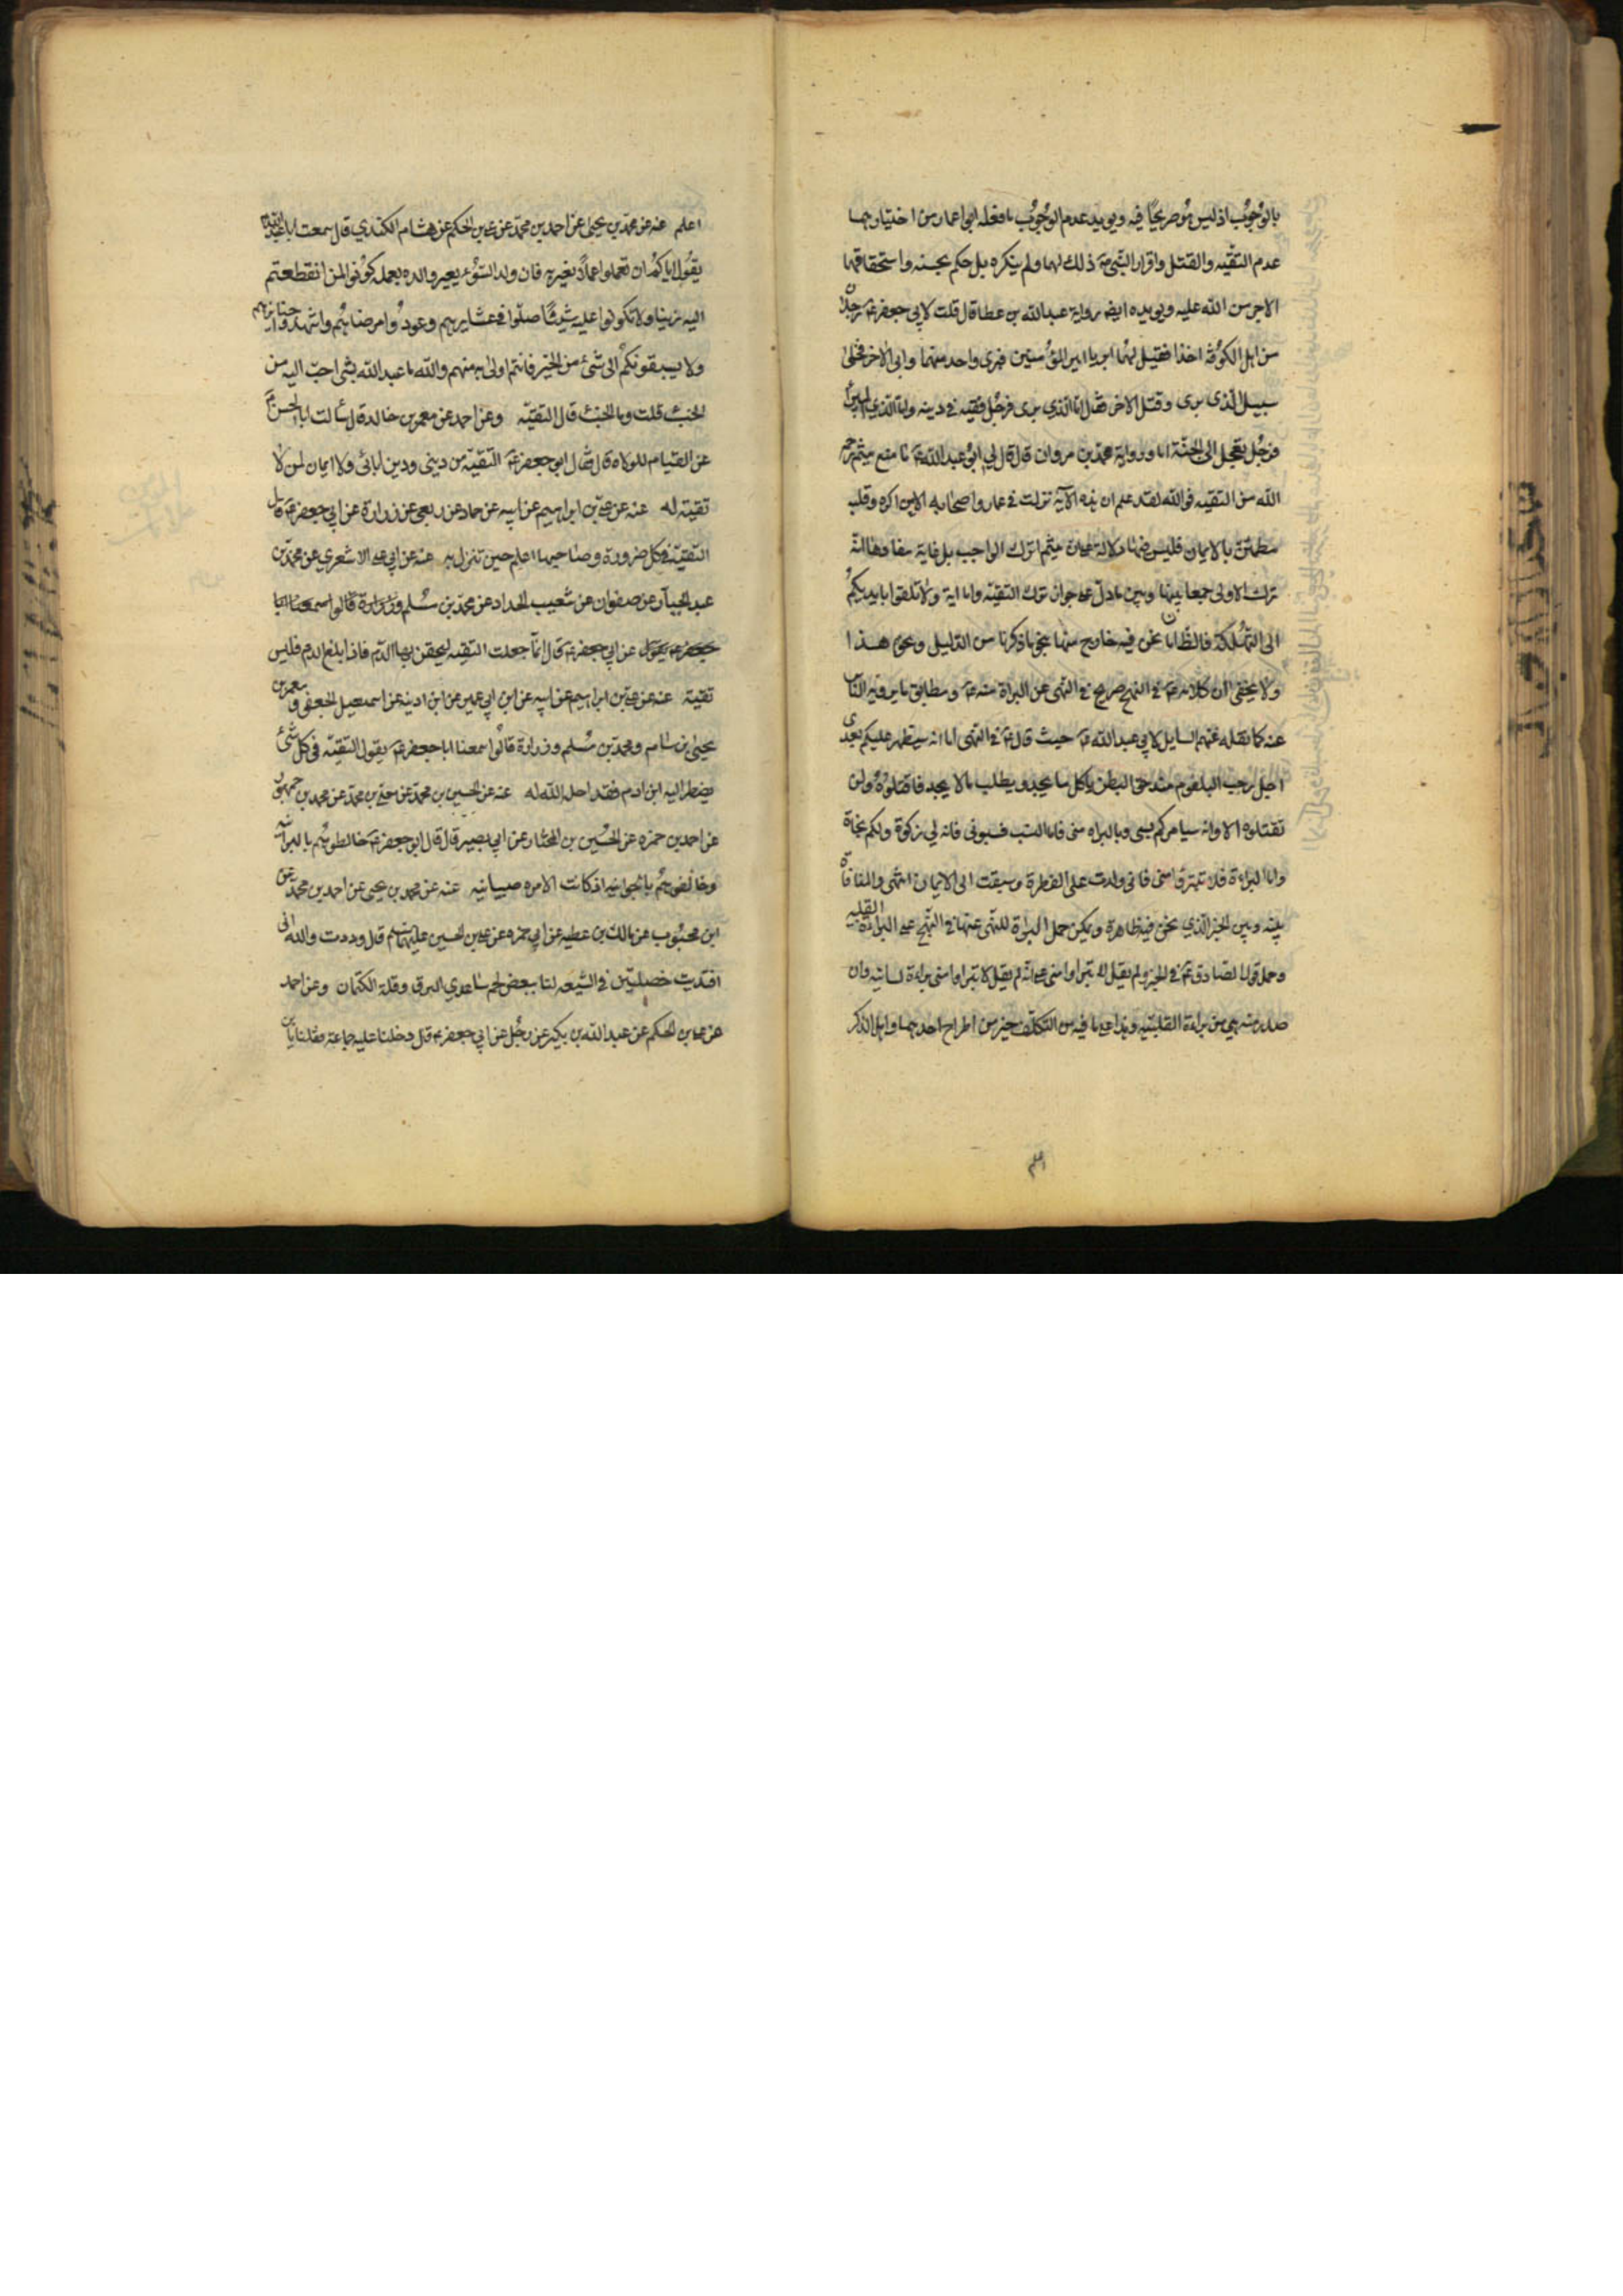 بالوجوب اذ ليس هو صريحا فيه ويويد عدم الوجوب ما فعله ابوا عمار من اختيارهما
عدم التقيه والقتل واقرار النبي ص ذلك لهما ولم ينكره بل حكم بحسنه واستحقاقهما
الاجر من الله عليه ويويده ايضا رواية عبد الله بن عطا قال قلت لابي جعفر ع رجلان
من اهل الكوفة اخذا فقيل لهما ابريا امير المؤمنين فبرى واحد منهما وابى الاخر فخلى
سبيل الذى برى وقتل الاخر فقال اما الذي برى فرجل فقيه في دينه واما الذي لم يبرأ
فرجل تعجل الى الجنة اما ورواية محمد بن مروان قال قال لي ابو عبد الله ع ما منع ميثم رحمه
الله من التقيه فوالله لقد علم ان هذه الآية نزلت في عمار واصحابه الا من اكره وقلبه
مطمئن بالايمان فليس فيها دلالة على ان ميثم ترك الواجب بل غاية مفادها انه
ترك الاولى جمعا بينها وبين ما دل على جواز ترك التقيه واما اية ولا تلقوا بايديكم
الى التهلكة فالظ ان ما نحن فيه خارج منها بنحو ما ذكرنا من الدليل ونحوه هذا
ولا يخفى ان كلامه ع في النهج صريح في النهى عن البراة منه ع ومطابق ما يرويه الناس
عنه كما نقله عنهم السايل لابي عبد الله ع حيث قال ع في النهى اما انه سيظهر عليكم بعدى
رجل رحب البلعوم مندحق البطن ياكل ما يجد ويطلب ما لا يجد فاقتلوه ولن
تقتلوه الا وانه سيامركم بسبي وبالبراه منى فاما السب فسبونى فانه لي زكوة ولكم نجاة
واما البراءة فلا تتبروا منى فانى ولدت على الفطرة وسبقت الى الايمان انتهى والمنافاة
بينه وبين الخبر الذي نحن فيه ظاهرة ويمكن حمل البراءة للنهى عنها في النهج على البراءة القلبيه
وحمل قول الصادق ع في الخبر ولم يقل لا تبراوا منى على انه لم يقل لا تبراوا منى براءة لسانيه وان
صدر منه هى من براءة القلبيه وهذا على ما فيه من التكلف خير من اطراح احدهما واهل الذكر
اعلم
اعلم عنه عن محمد بن يحيى عن احمد بن محمد عن على بن الحكم عن هشام الكندي قال سمعت ابا عبد الله ع
يقول اياكم ان تعملوا عملا نعير به فان ولد السوء يعير والده بعمله كونوا لمن انقطعتم
اليه زينا ولا تكونوا عليه شينا صلوا في عشايرهم وعودوا مرضاهم واشهدوا جنايزهم
ولا يسبقونكم الى شئ من الخير فانتم اولى به منهم والله ما عبد الله بشى احب اليه من
الخبء قلت وما الخبء قال التقيه وعن احمد عن معمر بن خالد قال سألت ابا الحسن ع
عن القيام للولاه قال فقال ابو جعفر ع التقيه من دينى ودين ابائى ولا ايمان لمن لا
تقية له عنه عن على بن ابراهيم عن ابيه عن حماد عن ربعى عن زرارة عن ابي جعفر ع قال
التقيه في كل ضرورة وصاحبها اعلم حين تنزل به عنه عن ابي على الاشعري عن محمد بن
عبد الجبار عن صفوان عن شعيب الحداد عن محمد بن مسلم وزرارة قالوا سمعنا ابا
جعفر ع يقول عن ابي جعفر ع قال انما جعلت التقيه ليحقن بها الدم فاذا بلغ الدم فليس
تقيه عنه عن على بن ابراهيم عن ابيه عن ابن ابي عمير عن ابن اذينه عن اسمعيل الجعفى ومعمر بن
يحيى بن سام ومحمد بن مسلم وزرارة قالوا سمعنا ابا جعفر ع يقول التقيه في كل شئ
يضطر اليه ابن ادم فقد احله الله له عنه عن الحسين بن محمد عن معلى بن محمد عن محمد بن جمهور
عن احمد بن حمزه عن الحسين بن المختار عن ابي بصير قال قال ابو جعفر ع خالطوهم بالبرانيه
وخالفوهم بالجوانيه اذ كانت الامره صبيانيه عنه عن محمد بن يحيى عن احمد بن محمد عن
ابن محبوب عن مالك بن عطيه عن ابي حمزه عن على بن الحسين عليهما السلام قال وددت والله انى
افتديت خصلتين في الشيعه لنا ببعض لحم ساعدي النزق وقلة الكتمان وعن احمد
عن على بن الحكم عن عبد الله بن بكير عن رجل عن ابي جعفر ع قال دخلنا عليه جماعة فقلنا يا بن